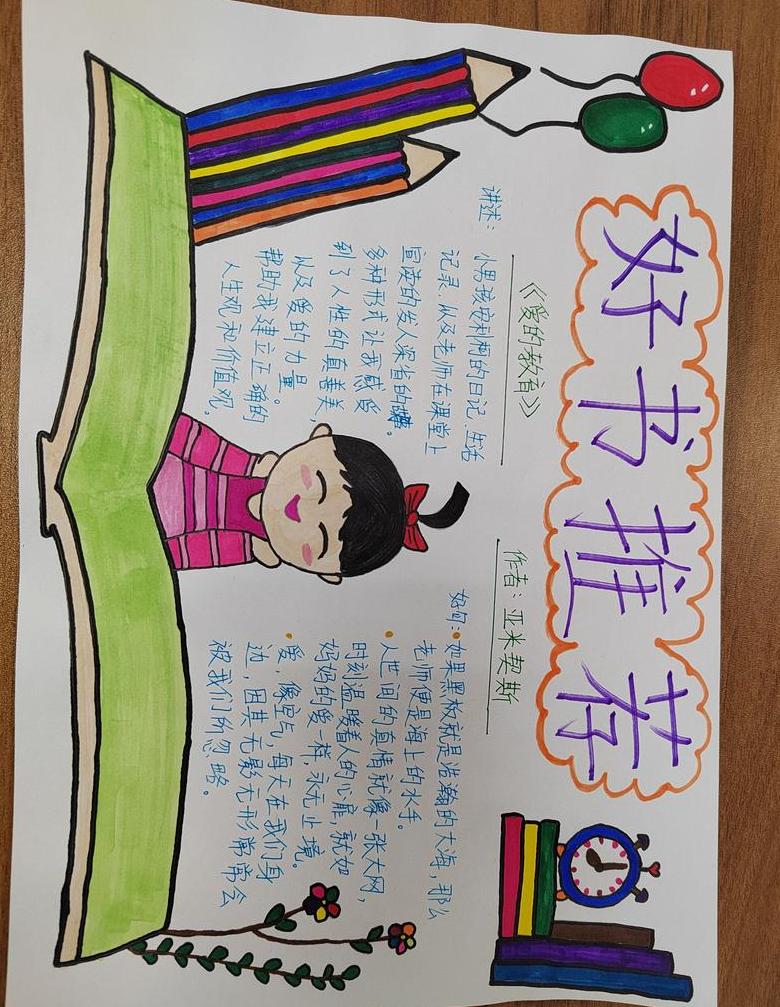 好书推荐
《爱的教育》
作者：亚米契斯
讲述：
小男孩安利柯的日记.生活
记录.从及老师在课堂上
宣读的发人深省的
多种形式让我感受
到了人性的真善美，
从及爱的力量。
帮助我建立正确的
人生观和价值观。
好句：如果黑板就是浩瀚的大海，那么
老师便是海上的水手。
人世间的真情就像一张大网，
时刻温暖着人的心扉，就如
妈妈的爱一样，永无止境。
爱，像空气，每天在我们身
边，因其无影无形常常会
被我们所忽略。